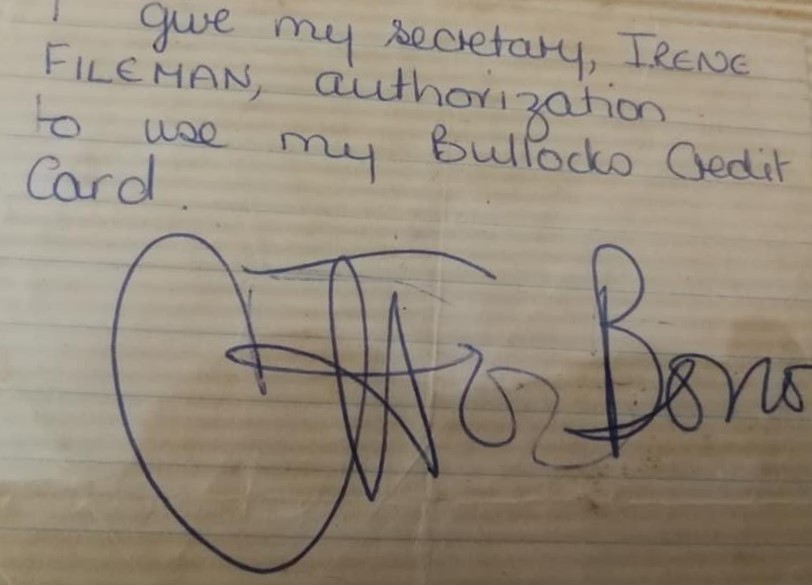 I give my secretary, IRENE
FILEMAN, authorization
to use my Bullocks Credit
Card.
Bono